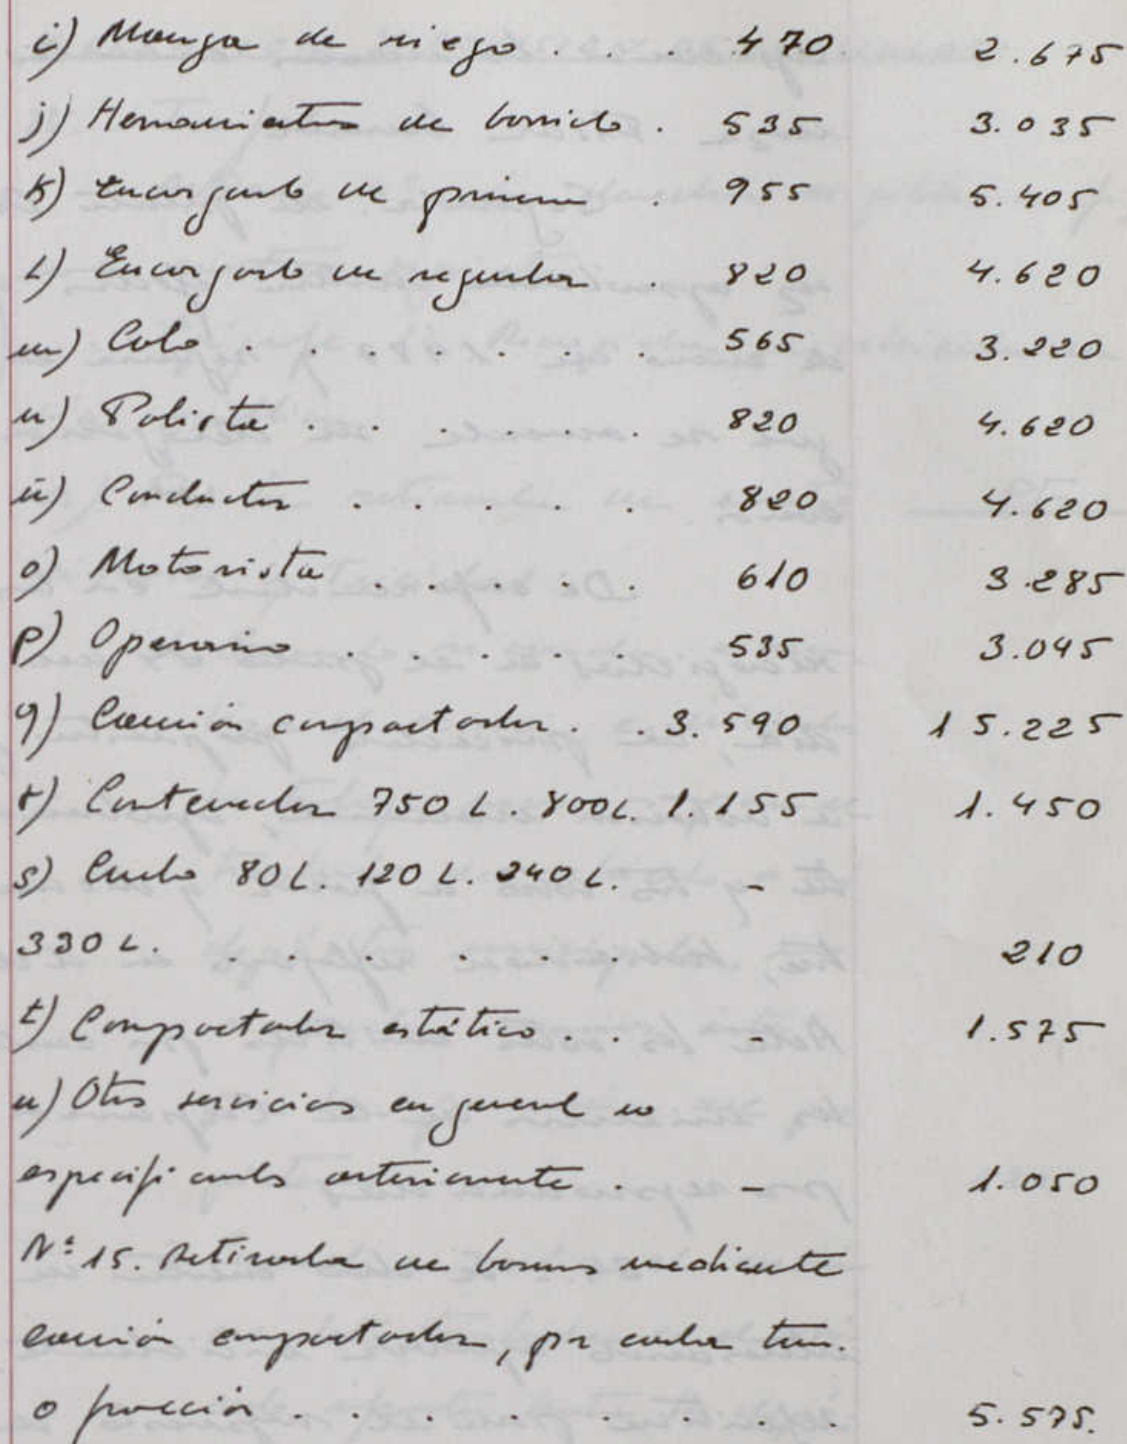 i) Manga de riego . . . 470 2.675
j) Herramientas de barrido . 535 3.035
k) Encargado de primera . 955 5.405
l) Encargado de segunda . 820 4.620
m) Cabo . . . . . . . 565 3.220
n) Palista . . . . . . 820 4.620
ñ) Conductor . . . . . 820 4.620
o) Motorista . . . . . 610 3.285
p) Operario . . . . . 535 3.045
q) Camión compactador . . 3.590 15.225
r) Contenedor 750 L. 800L. 1.155 1.450
s) Cubo 80L. 120 L. 240 L. -
330 L. . . . . . . 210
t) Compactador estático . . - 1.575
u) Otros servicios en general no
especificados anteriormente . - 1.050
Nº 15. Retirada de basuras mediante
camión compactador, por cada tm.
o fracción . . . . . . . 5.575.